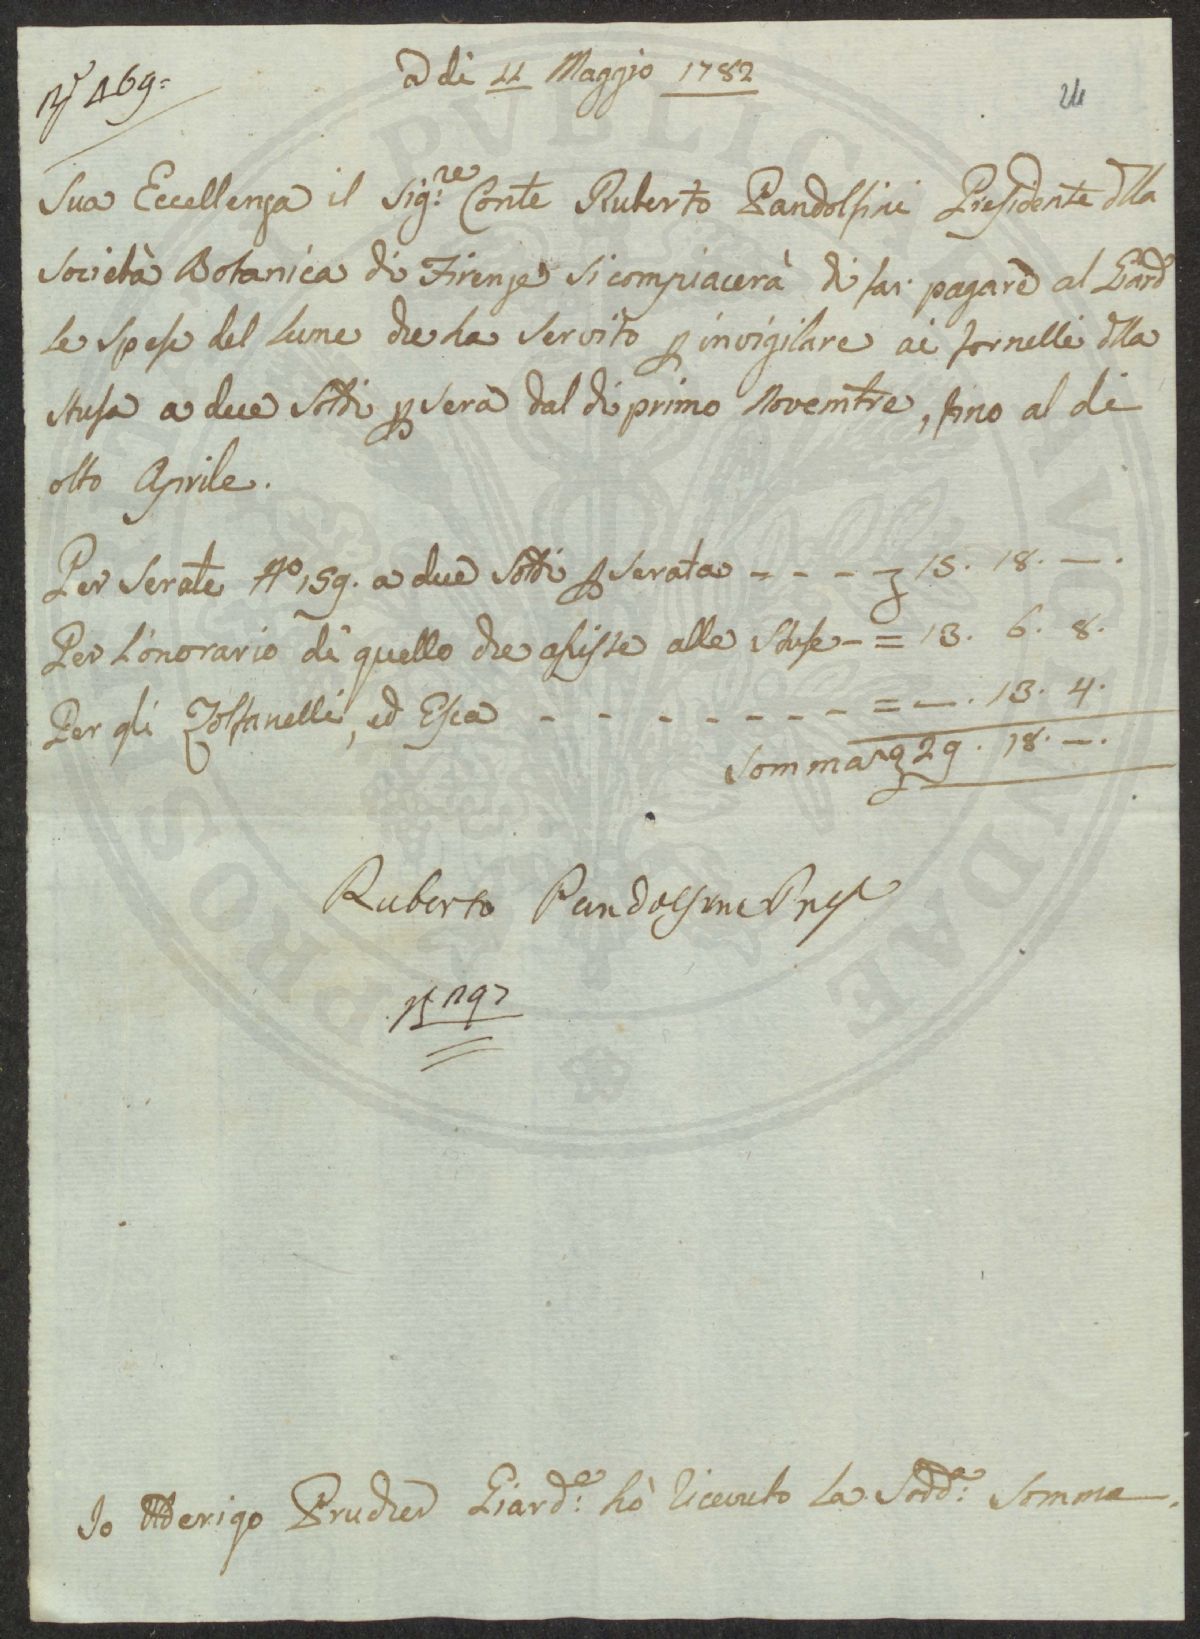 N.º 469=
a di 11 Maggio 1782
24
Sua Eccellenza il Sig:re Conte Ruberto Pandolfini Presidente dlla
Società Botanica di Firenze si compiacerà di far pagare al Giard:e
le spese del lume che ha servito p invigilare ai fornelli dlla
stufa a due soldi p sera dal di primo Novembre, fino al di
otto Aprile.
Per serate Nº 159. a due soldi p serata - - - - £ 15. 18. —.
Per l'onorario di quello che assiste alle stufe - = 13. 6. 8.
Per gli Zolfanelli, ed Esca - - - - - - - - = —. 13. 4.
Somma £ 29. 18. —.
Ruberto Pandolfini Pres
297
Io Arrigo Prucher Giard:e hò ricevuto la Sodd:a somma.
PVBLICAE FELICITATIS PROSPERITATI AC